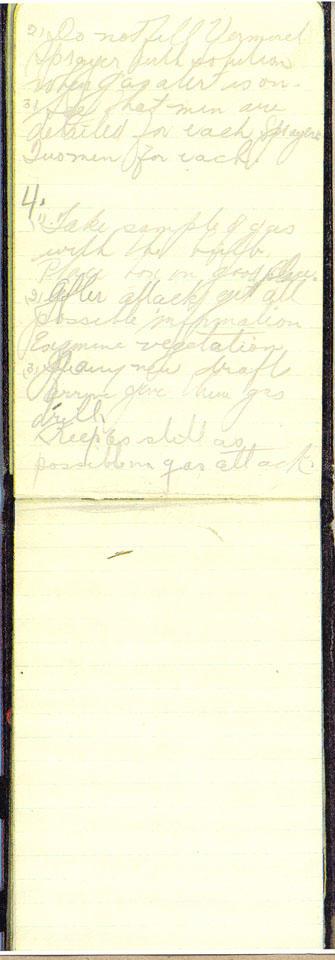 2) Do not fill Vermorel
Sprayer with solution
when gas alert is on.
3) See that men are
detailed for each Sprayer
Two men for each.
4.
1) Take sample of gas
with the bulb.
Place box on good place.
2) After attack get all
possible information
Examine vegetation
3) If any new draft
arrive give them gas
drill.
Keep as still as
possible in gas attack.